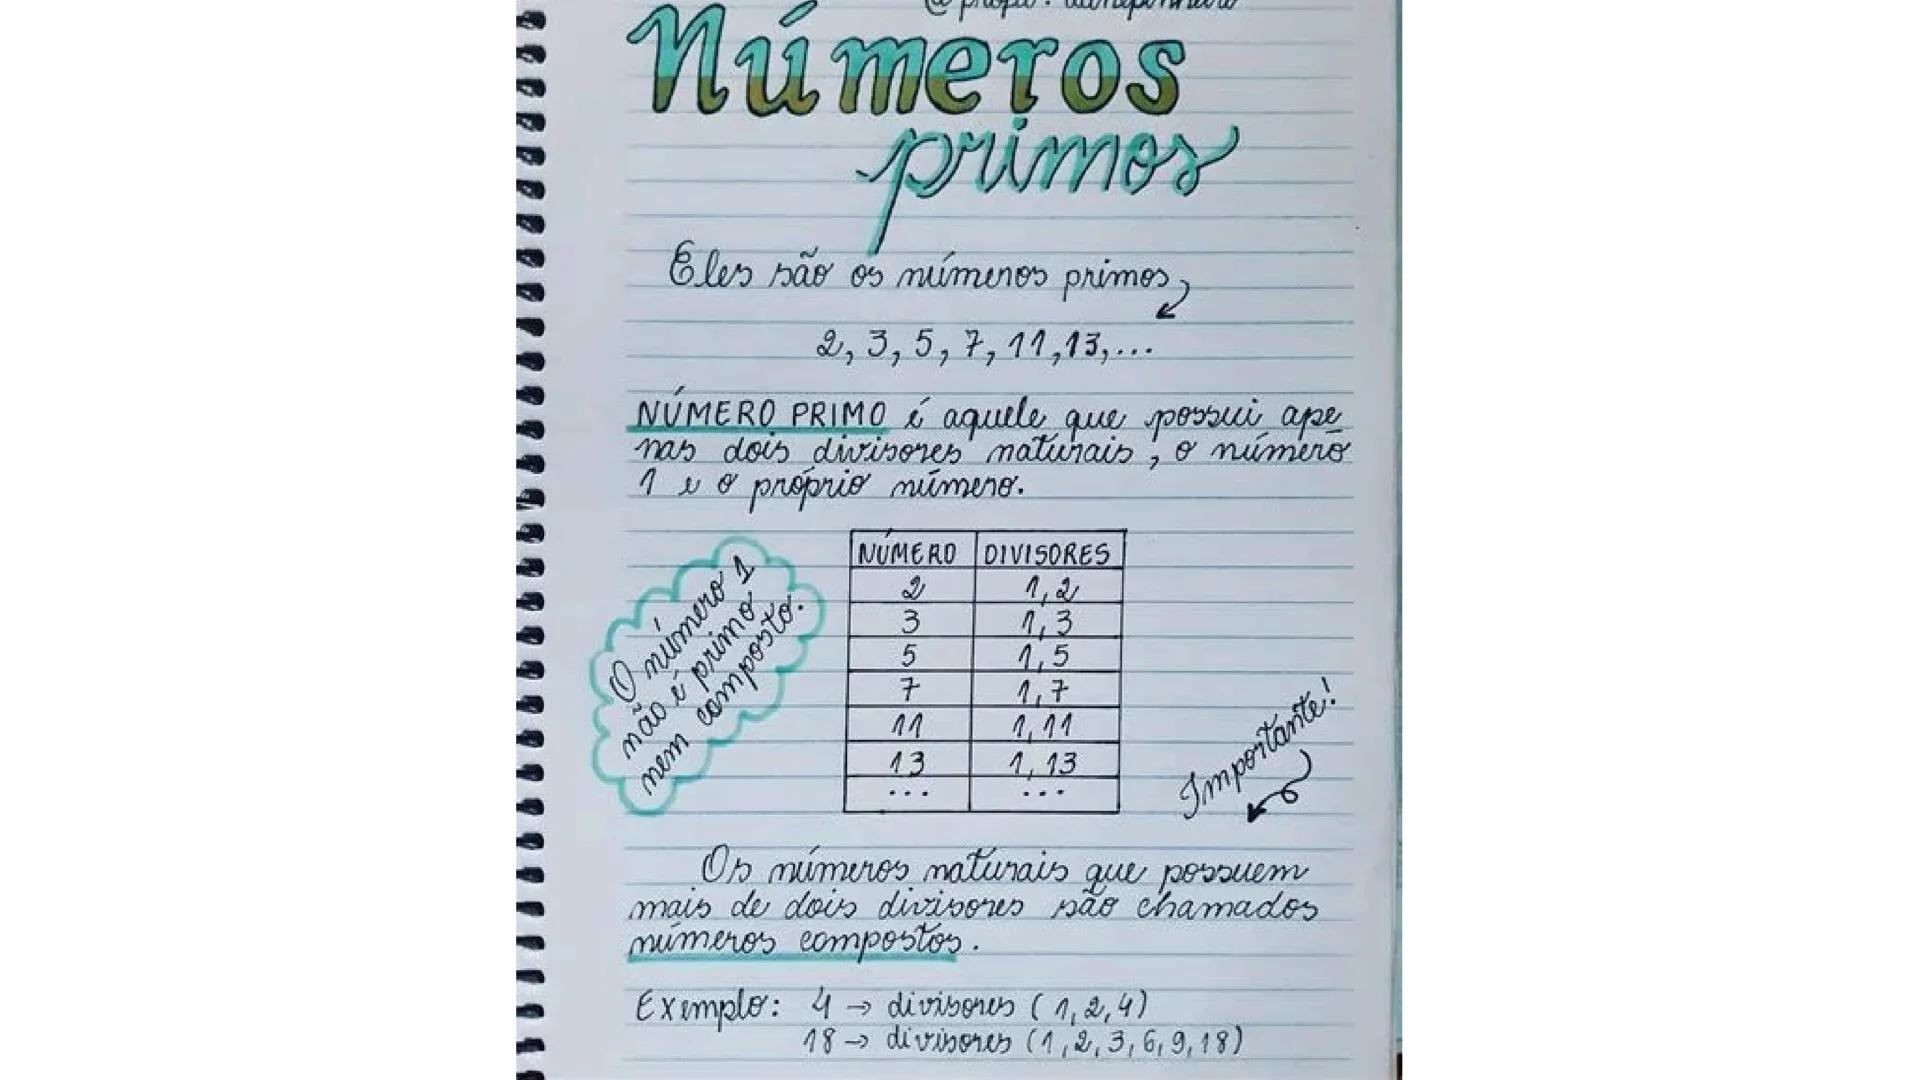 Números
primos
Eles são os números primos
2, 3, 5, 7, 11, 13, ...
NÚMERO PRIMO é aquele que possui ape
nas dois divisores naturais, o número
1 e o próprio número.
O número 1
não é primo
nem composto.
NÚMERO DIVISORES
2 1, 2
3 1, 3
5 1, 5
7 1, 7
11 1, 11
13 1, 13
... ...
Importante!
Os números naturais que possuem
mais de dois divisores são chamados
números compostos.
Exemplo: 4 → divisores (1, 2, 4)
18 → divisores (1, 2, 3, 6, 9, 18)